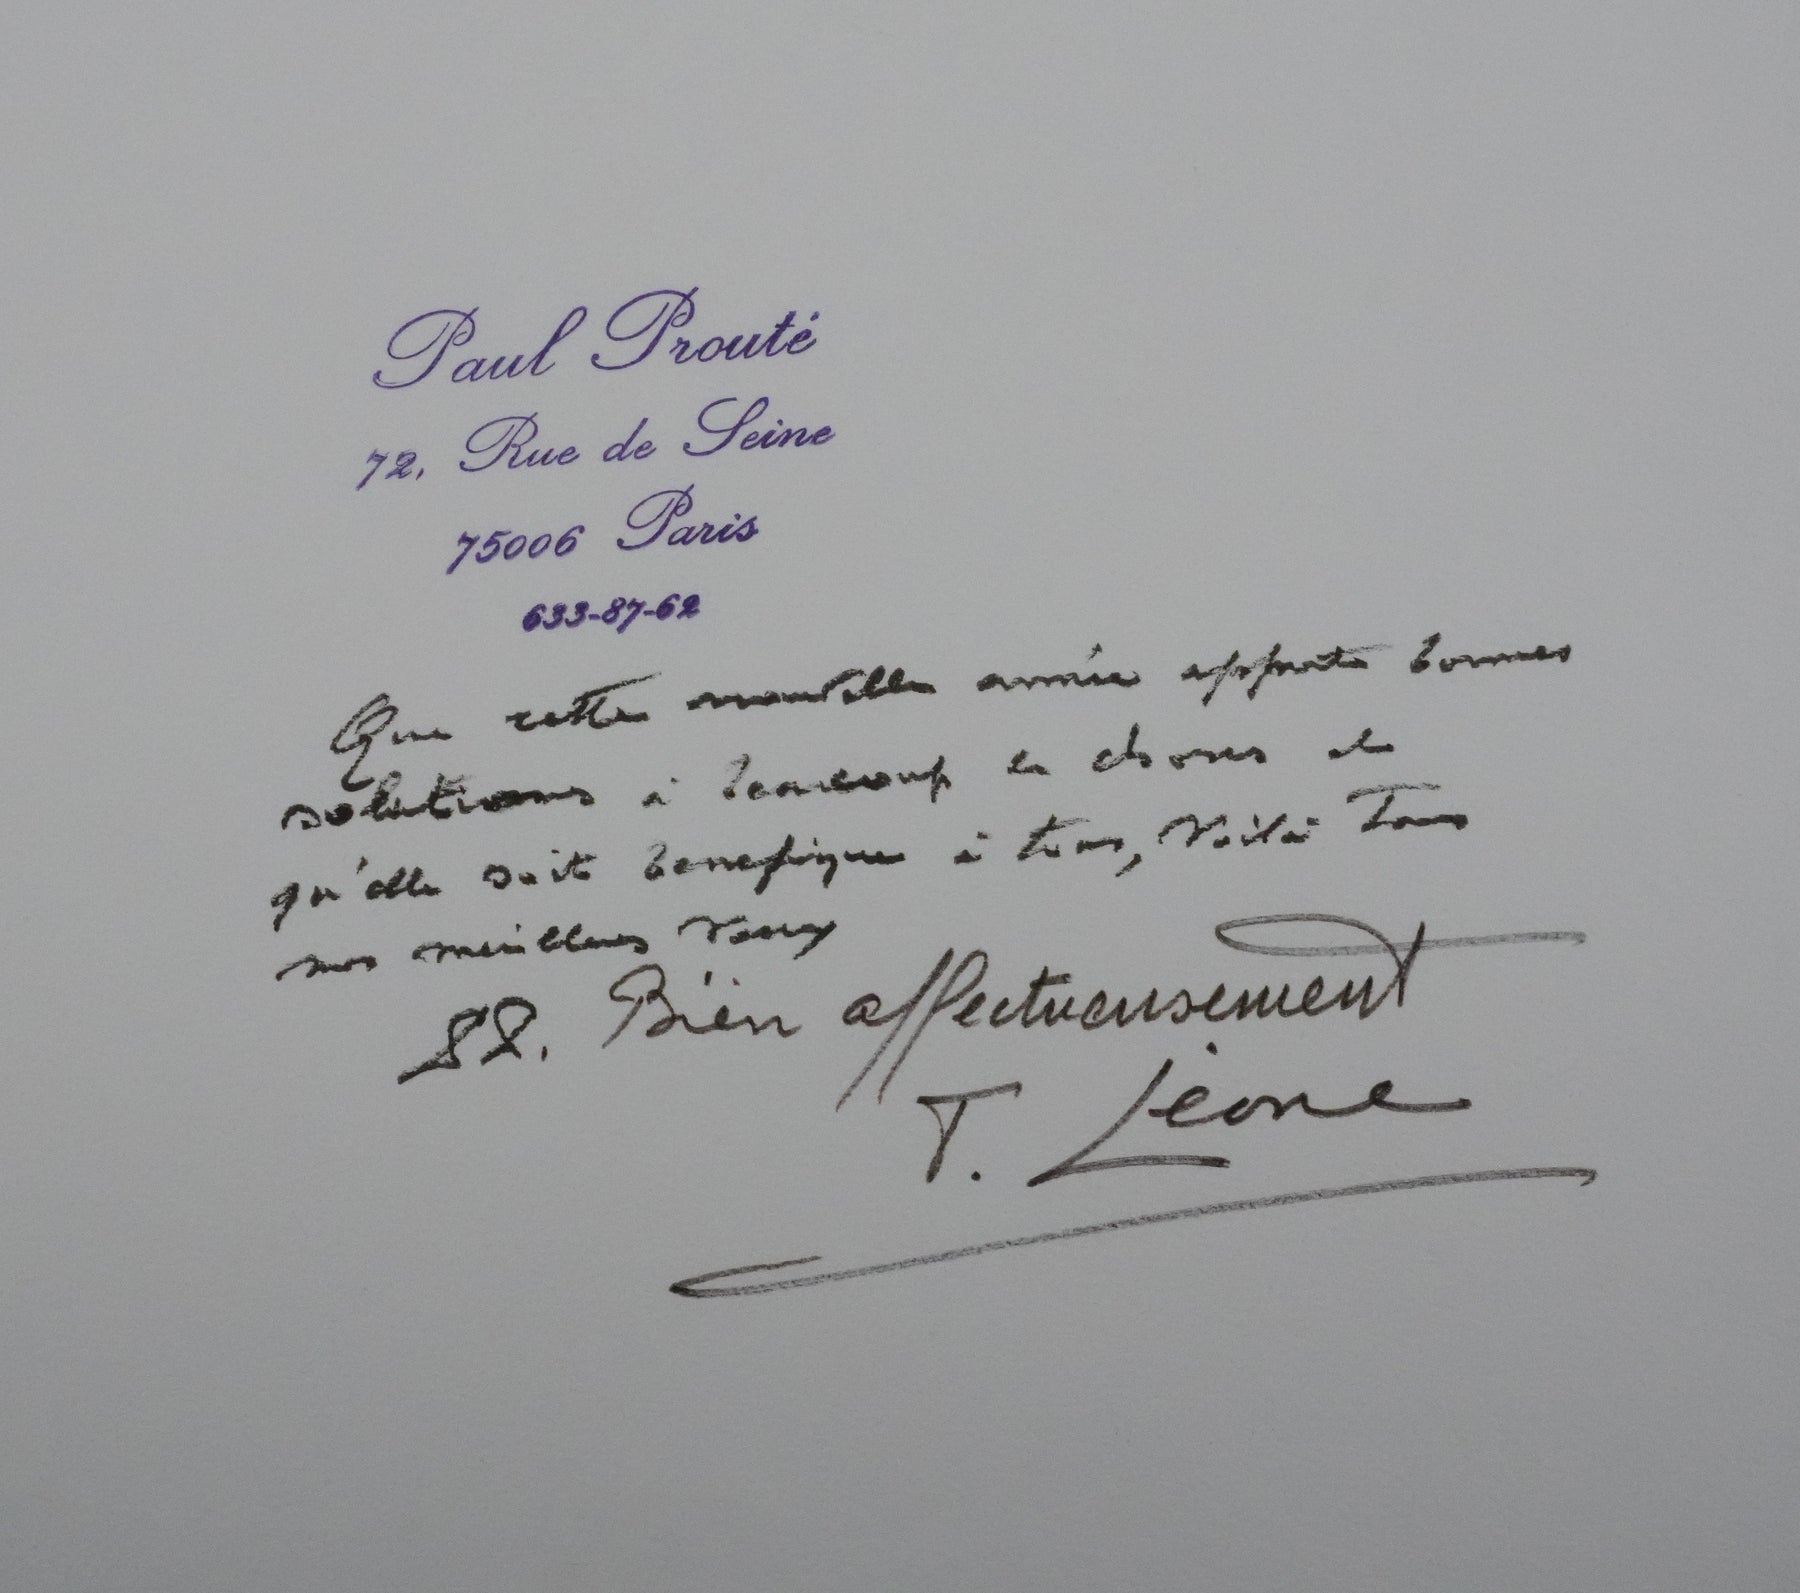 Paul Prouté
72, Rue de Seine
75006 Paris
633-87-62
Que cette nouvelle année apporte bonnes
solutions à beaucoup de choses et
qu'elle soit benefique à tous, Voilà Tous
nos meilleurs Vœux
88. Bien affectueusement
T. Léone